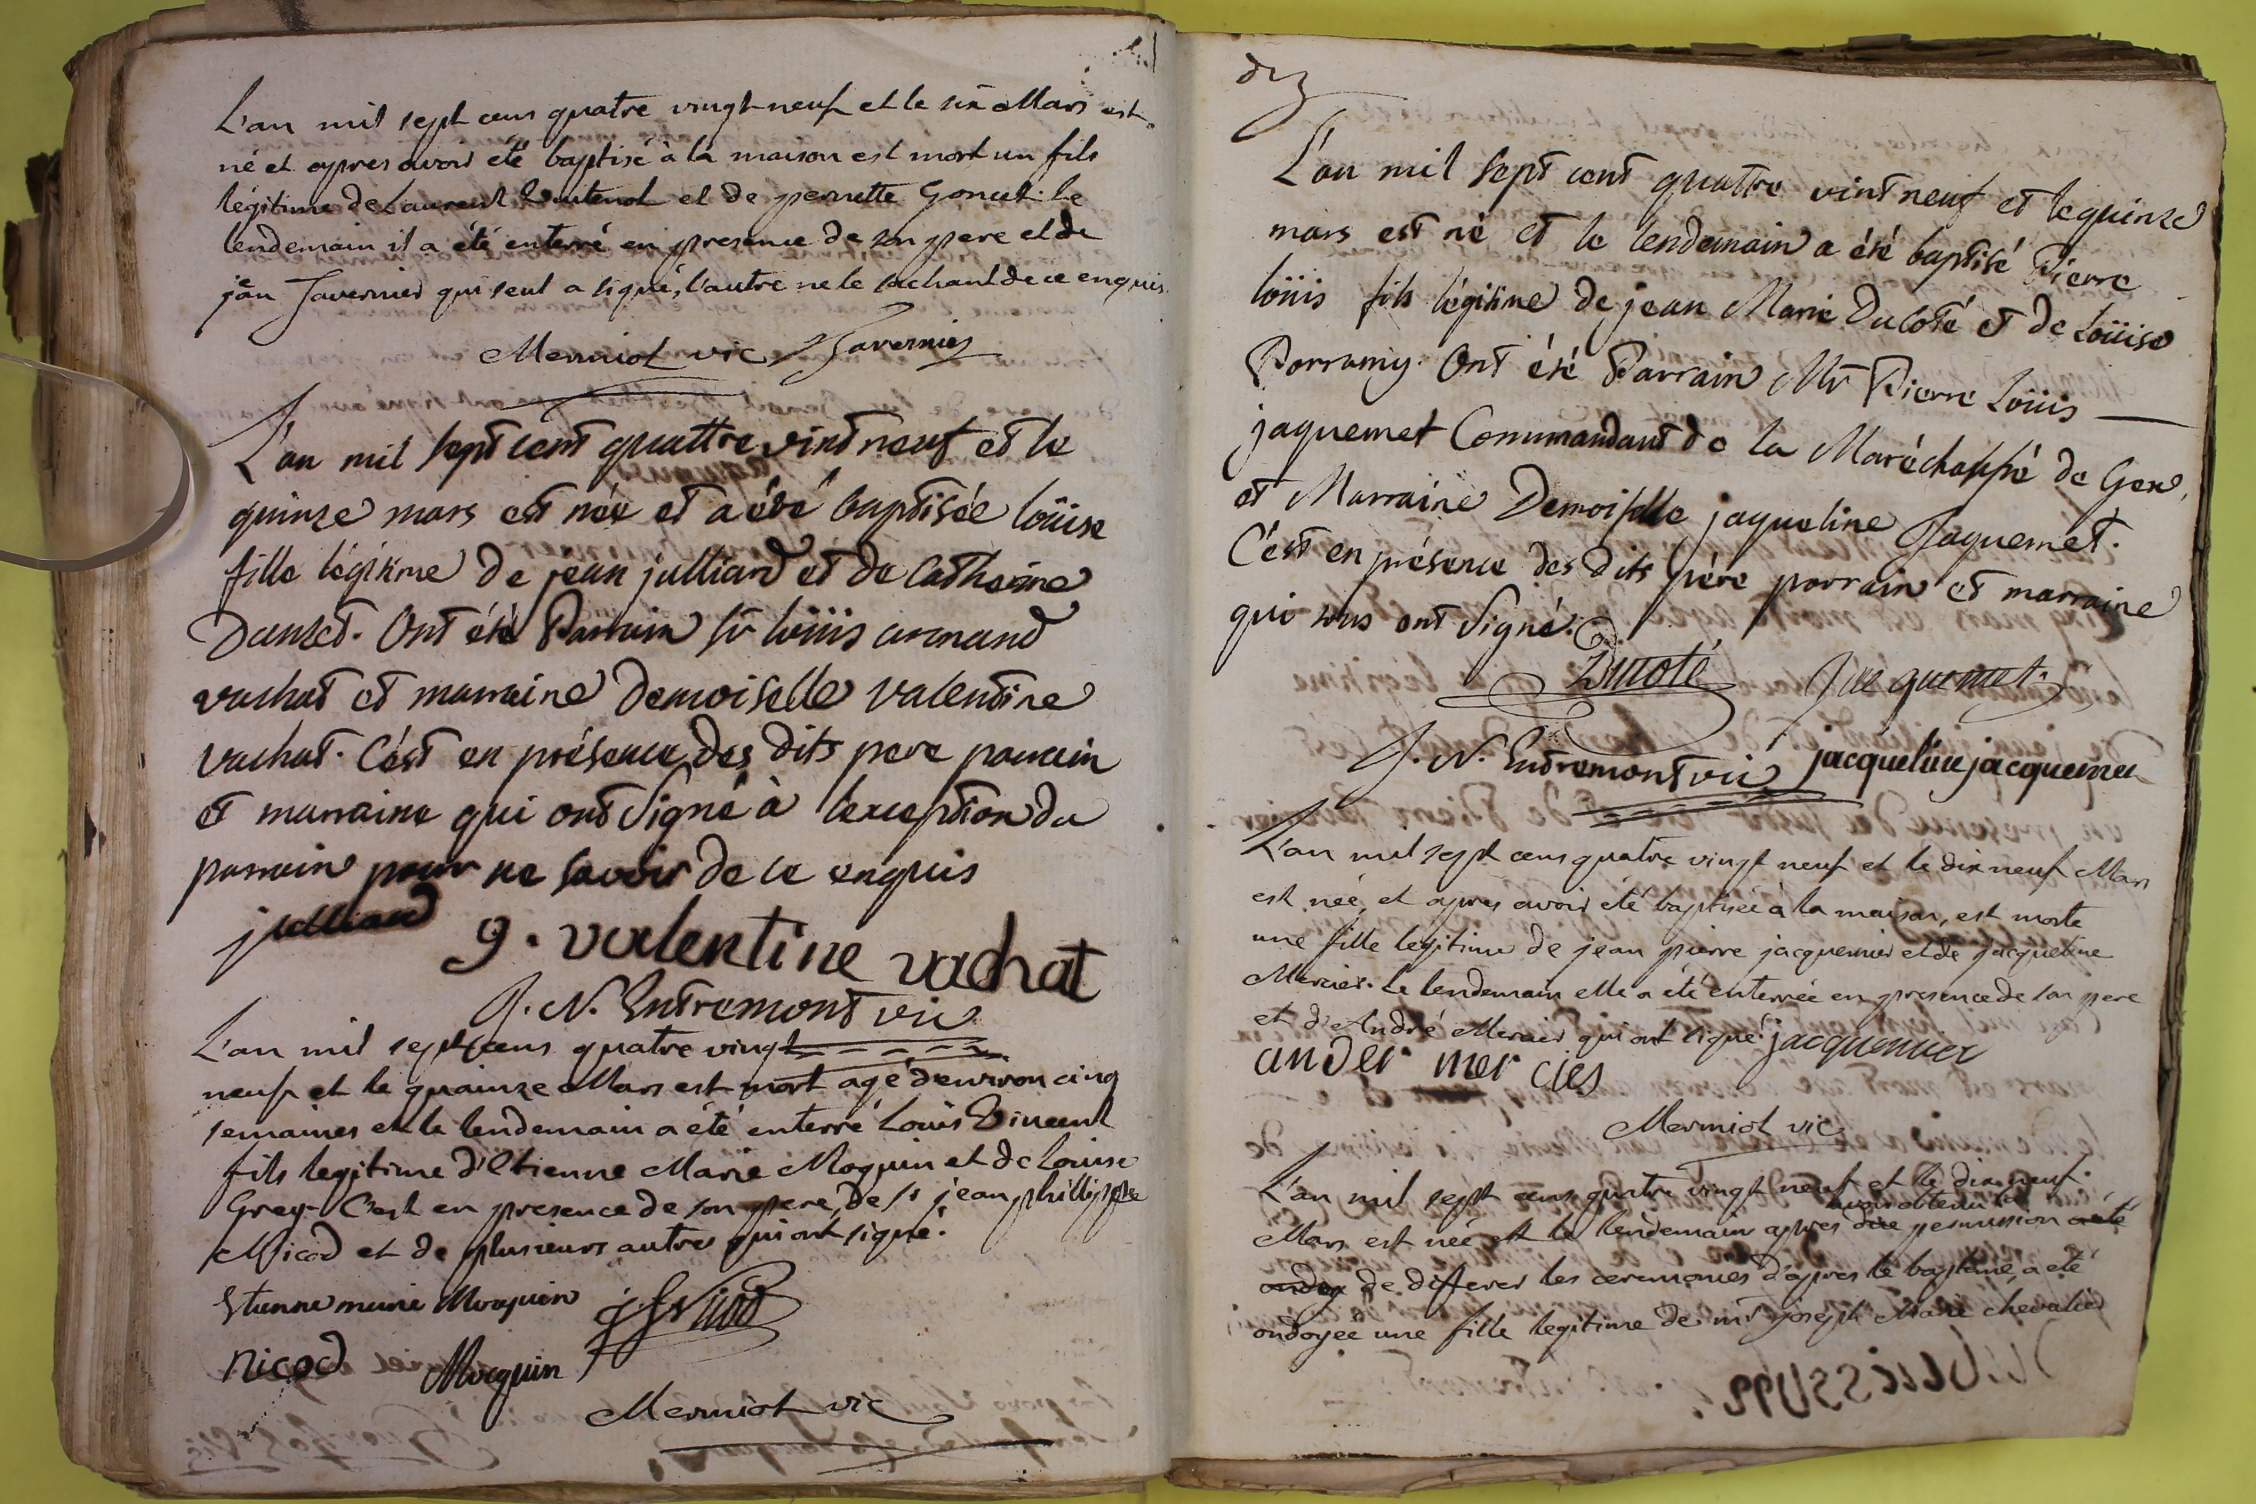 L'an mil sept cens quatre vingt-neuf et le six Mars est
né et apres avoir été baptisé à la maison est mort un fils
légitime de Laurent et de perrette Goncet. Le
lendemain il a été enterré en presence de son pere et de
jean Tavernier qui seul a signé, l'autre ne le sachant de ce enquis.
Mermiot vic Tavernier
L'an mil sept cent quattre vint neuf et le
quinze mars est née et a été baptisée loüise
fille légitime de jean julliard et de Catherine
Danzet. Ont été Parrain Sr loüis armand
vachat et marraine Demoiselle valentine
vachat. C'est en présence des dits pere parrain
et marraine qui ont signé à l'exception du
parrain pour ne savoir de ce enquis
julliard
g. valentine vachat
J. N. Entremont vic
L'an mil sept cens quatre vingt
neuf et le quainze Mars est mort agé d'environ cinq
semaines et le lendemain a été enterré Louis Vincent
fils legitime d'Etienne Marie Moquin et de Louise
Grey. C'est en presence de son pere, de sr jean phillippe
Nicod et de plusieurs autres qui ont signé.
Etienne marie Moquin
j ph Nicod
nicod Mocquin
Mermiot vic
dix
L'an mil sept cent quattre vint neuf et le quinze
mars est né et le lendemain a été baptisé Pierre
loüis fils légitime de jean Marie Ducoté et de Loüise
Porramy. Ont été Parrain Mr Pierre Loüis
jaquemet Commandant de la Maréchaussé de Gex,
et Marraine Demoiselle jaqueline Jaquemet.
C'est en présence des dits père parrain et marraine
qui tous ont signé.
Ducoté Jacquemet.
J. N. Entremont vic jacqueline jacquemet
L'an mil sept cens quatre vingt neuf et le dix neuf Mars
est née, et apres avoir été baptisée à la maison, est morte
une fille legitime de jean pierre jacquemier et de jacqueline
Mercier. Le lendemain elle a été enterrée en presence de son pere
et d'André Mercier qui ont signé. jacquemier
ander mer cies
Mermiot vic
L'an mil sept cens quatre vingt neuf et le dix neuf
avoir obtenu la
Mars est née et le lendemain apres due permission a été
ondoy de differer les ceremonies d'apres le baptême, a été
ondoyée une fille legitime de mr joseph Marie chevalier